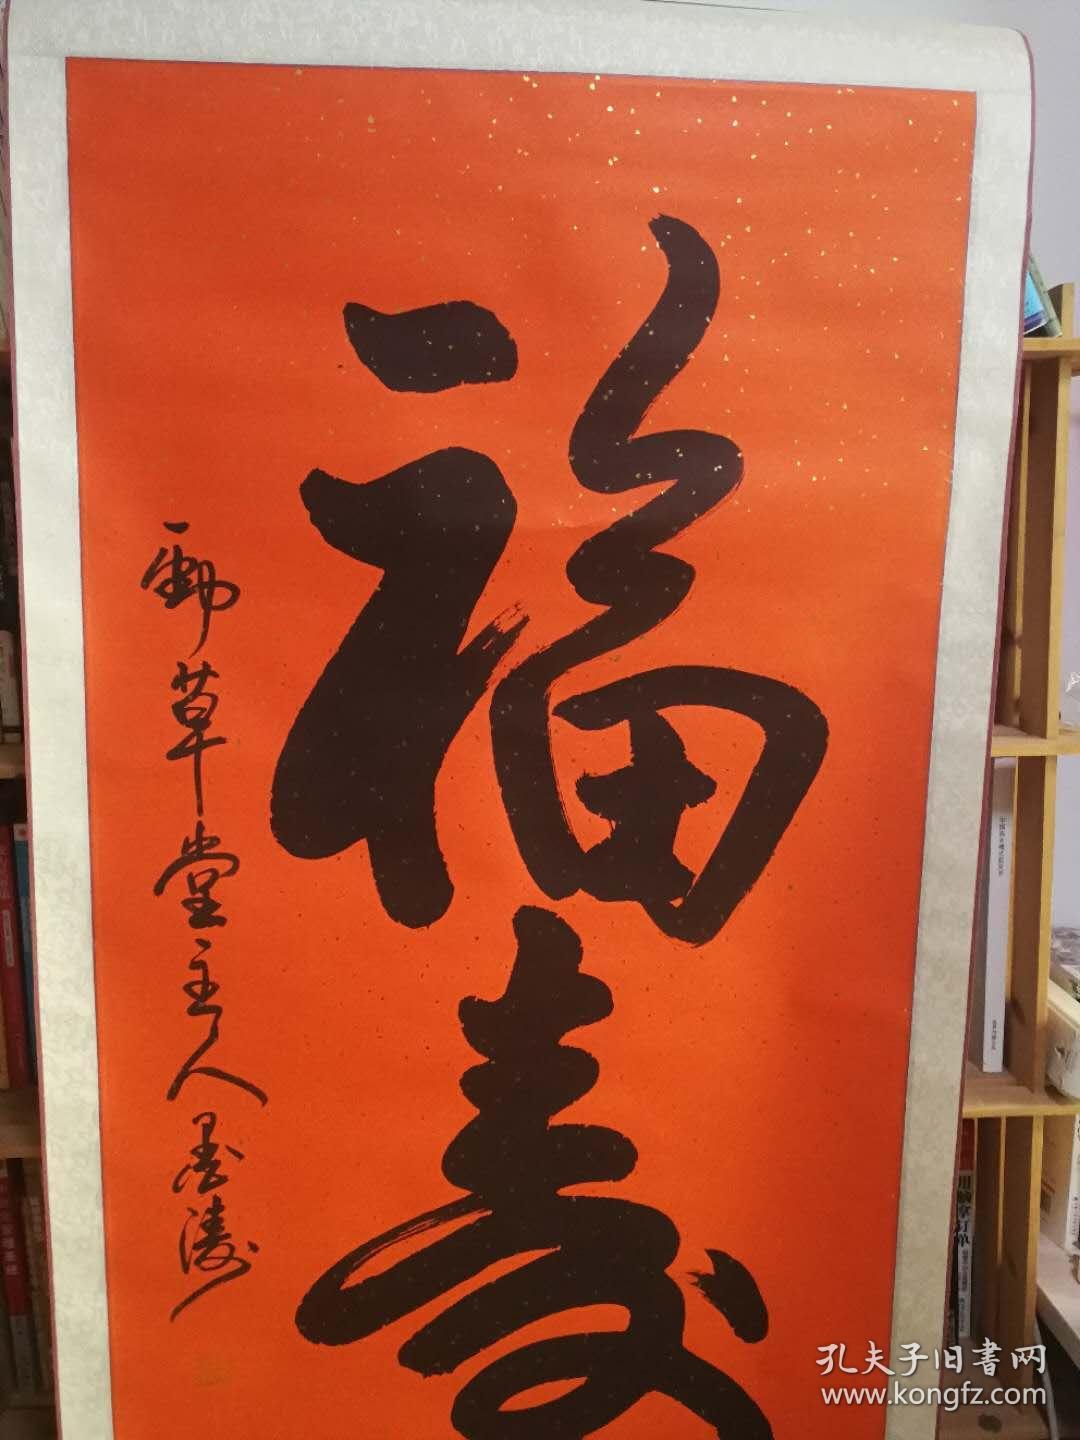 福寿
草堂主人墨涛
孔夫子旧書网
www.kongfz.com